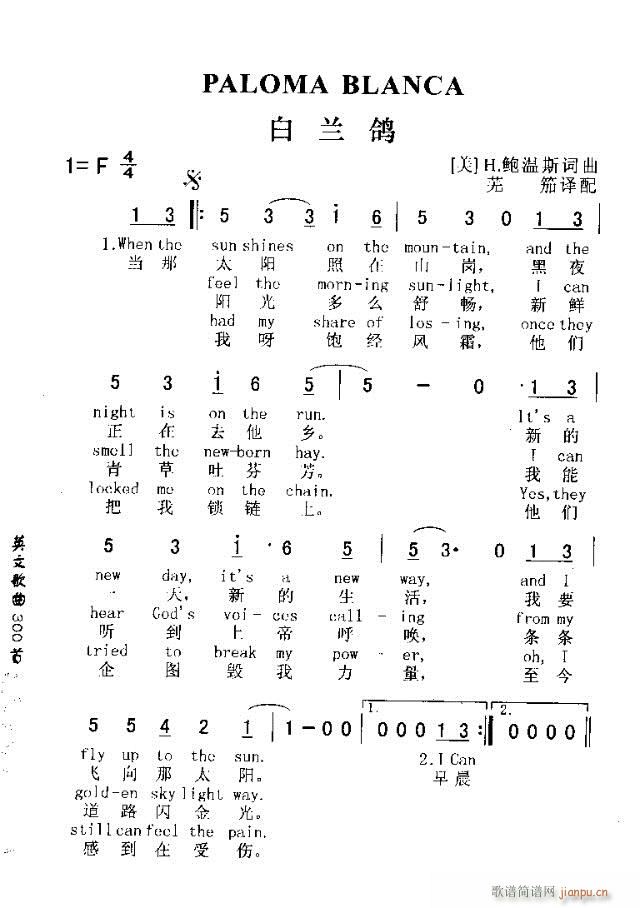 PALOMA BLANCA
白兰鸽
1=F 4/4
[美] H.鲍温斯词曲
芜 笳译配
1 3 5 3 3 i 6 5 3 0 1 3
1.When the sun shines on the moun-tain, and the
当那 太阳 照在山岗, 黑夜
feel the morn-ing sun-light, I can
阳光 多么舒畅, 新鲜
had my share of los-ing, once they
我呀 饱经风霜, 他们
5 3 i 6 5 5 - 0 1 3
night is on the run. It's a
正在去他乡。 新的
smell the new-born hay. I can
青草吐芬芳。 我能
locked me on the chain. Yes, they
把我锁链上。 他们
5 3 i · 6 5 5 3· 0 1 3
new day, it's a new way, and I
一天, 新的生活, 我要
hear God's voi-ces call-ing from my
听到上帝呼唤, 条条
tried to break my pow-er, oh, I
企图毁我力量, 至今
5 5 4 2 1 1-00 1. 000 1 3 2. 0000
fly up to the sun. 2.I Can
飞向那太阳。 早晨
gold-en sky light way.
道路闪金光。
still can feel the pain.
感到在受伤。
英文歌曲300首
歌谱简谱网 jianpu.cn